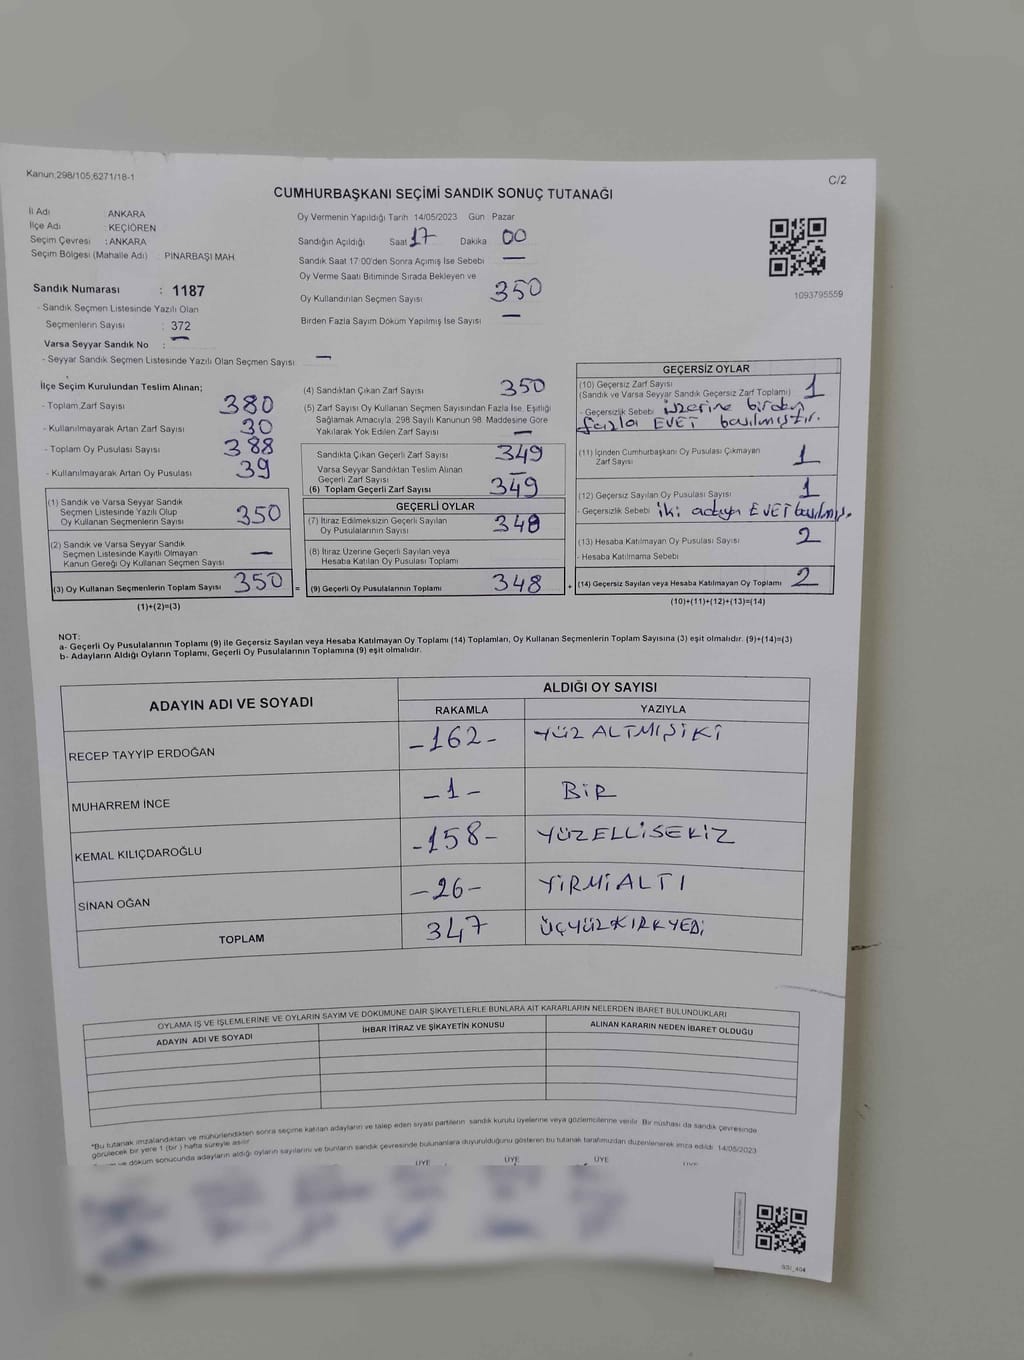 Kanun 298/105,6271/18-1
C/2
CUMHURBAŞKANI SEÇİMİ SANDIK SONUÇ TUTANAĞI
İl Adı : ANKARA
İlçe Adı : KEÇİÖREN
Seçim Çevresi : ANKARA
Seçim Bölgesi (Mahalle Adı) : PINARBAŞI MAH.
Sandık Numarası : 1187
- Sandık Seçmen Listesinde Yazılı Olan
Seçmenlerin Sayısı : 372
Varsa Seyyar Sandık No : —
- Seyyar Sandık Seçmen Listesinde Yazılı Olan Seçmen Sayısı —
Oy Vermenin Yapıldığı Tarih 14/05/2023 Gün Pazar
Sandığın Açıldığı Saat 17 Dakika 00
Sandık Saat 17:00'den Sonra Açılmış İse Sebebi —
Oy Verme Saati Bitiminde Sırada Bekleyen ve
Oy Kullandırılan Seçmen Sayısı 350
Birden Fazla Sayım Döküm Yapılmış İse Sayısı —
1093795559
İlçe Seçim Kurulundan Teslim Alınan;
- Toplam Zarf Sayısı 380
- Kullanılmayarak Artan Zarf Sayısı 30
- Toplam Oy Pusulası Sayısı 388
- Kullanılmayarak Artan Oy Pusulası 39
(1) Sandık ve Varsa Seyyar Sandık
Seçmen Listesinde Yazılı Olup
Oy Kullanan Seçmenlerin Sayısı 350
(2) Sandık ve Varsa Seyyar Sandık
Seçmen Listesinde Kayıtlı Olmayan
Kanun Gereği Oy Kullanan Seçmen Sayısı —
(3) Oy Kullanan Seçmenlerin Toplam Sayısı 350 =
(1)+(2)=(3)
(4) Sandıktan Çıkan Zarf Sayısı 350
(5) Zarf Sayısı Oy Kullanan Seçmen Sayısından Fazla İse, Eşitliği
Sağlamak Amacıyla, 298 Sayılı Kanunun 98. Maddesine Göre
Yakılarak Yok Edilen Zarf Sayısı —
Sandıkta Çıkan Geçerli Zarf Sayısı 349
Varsa Seyyar Sandıktan Teslim Alınan
Geçerli Zarf Sayısı —
(6) Toplam Geçerli Zarf Sayısı 349
GEÇERLİ OYLAR
(7) İtiraz Edilmeksizin Geçerli Sayılan
Oy Pusulalarının Sayısı 348
(8) İtiraz Üzerine Geçerli Sayılan veya
Hesaba Katılan Oy Pusulası Toplamı
(9) Geçerli Oy Pusulalarının Toplamı 348 +
GEÇERSİZ OYLAR
(10) Geçersiz Zarf Sayısı
(Sandık ve Varsa Seyyar Sandık Geçersiz Zarf Toplamı) 1
- Geçersizlik Sebebi üzerine birden
fazla EVET basılmıştır.
(11) İçinden Cumhurbaşkanı Oy Pusulası Çıkmayan
Zarf Sayısı 1
(12) Geçersiz Sayılan Oy Pusulası Sayısı 1
- Geçersizlik Sebebi iki adaya EVET basılmış.
(13) Hesaba Katılmayan Oy Pusulası Sayısı 2
- Hesaba Katılmama Sebebi
(14) Geçersiz Sayılan veya Hesaba Katılmayan Oy Toplamı 2
(10)+(11)+(12)+(13)=(14)
NOT:
a- Geçerli Oy Pusulalarının Toplamı (9) ile Geçersiz Sayılan veya Hesaba Katılmayan Oy Toplamı (14) Toplamları, Oy Kullanan Seçmenlerin Toplam Sayısına (3) eşit olmalıdır. (9)+(14)=(3)
b- Adayların Aldığı Oyların Toplamı, Geçerli Oy Pusulalarının Toplamına (9) eşit olmalıdır.
ADAYIN ADI VE SOYADI ALDIĞI OY SAYISI
RAKAMLA YAZIYLA
RECEP TAYYİP ERDOĞAN -162- YÜZ ALTMIŞİKİ
MUHARREM İNCE -1- BİR
KEMAL KILIÇDAROĞLU -158- YÜZELLİSEKİZ
SİNAN OĞAN -26- YİRMİALTI
TOPLAM 347 ÜÇYÜZKIRKYEDİ
OYLAMA İŞ VE İŞLEMLERİNE VE OYLARIN SAYIM VE DÖKÜMÜNE DAİR ŞİKAYETLERLE BUNLARA AİT KARARLARIN NELERDEN İBARET BULUNDUKLARI
ADAYIN ADI VE SOYADI İHBAR İTİRAZ VE ŞİKAYETİN KONUSU ALINAN KARARIN NEDEN İBARET OLDUĞU
*Bu tutanak imzalandıktan ve mühürlendikten sonra seçime katılan adayların ve talep eden siyasi partilerin sandık kurulu üyelerine veya gözlemcilerine verilir. Bir nüshası da sandık çevresinde
görülecek bir yere 1 (bir) hafta süreyle asılır.
ve döküm sonucunda adayların aldığı oyların sayılarını ve bunların sandık çevresinde bulunanlara duyurulduğunu gösteren bu tutanak tarafımızdan düzenlenerek imza edildi. 14/05/2023
ÜYE ÜYE ÜYE